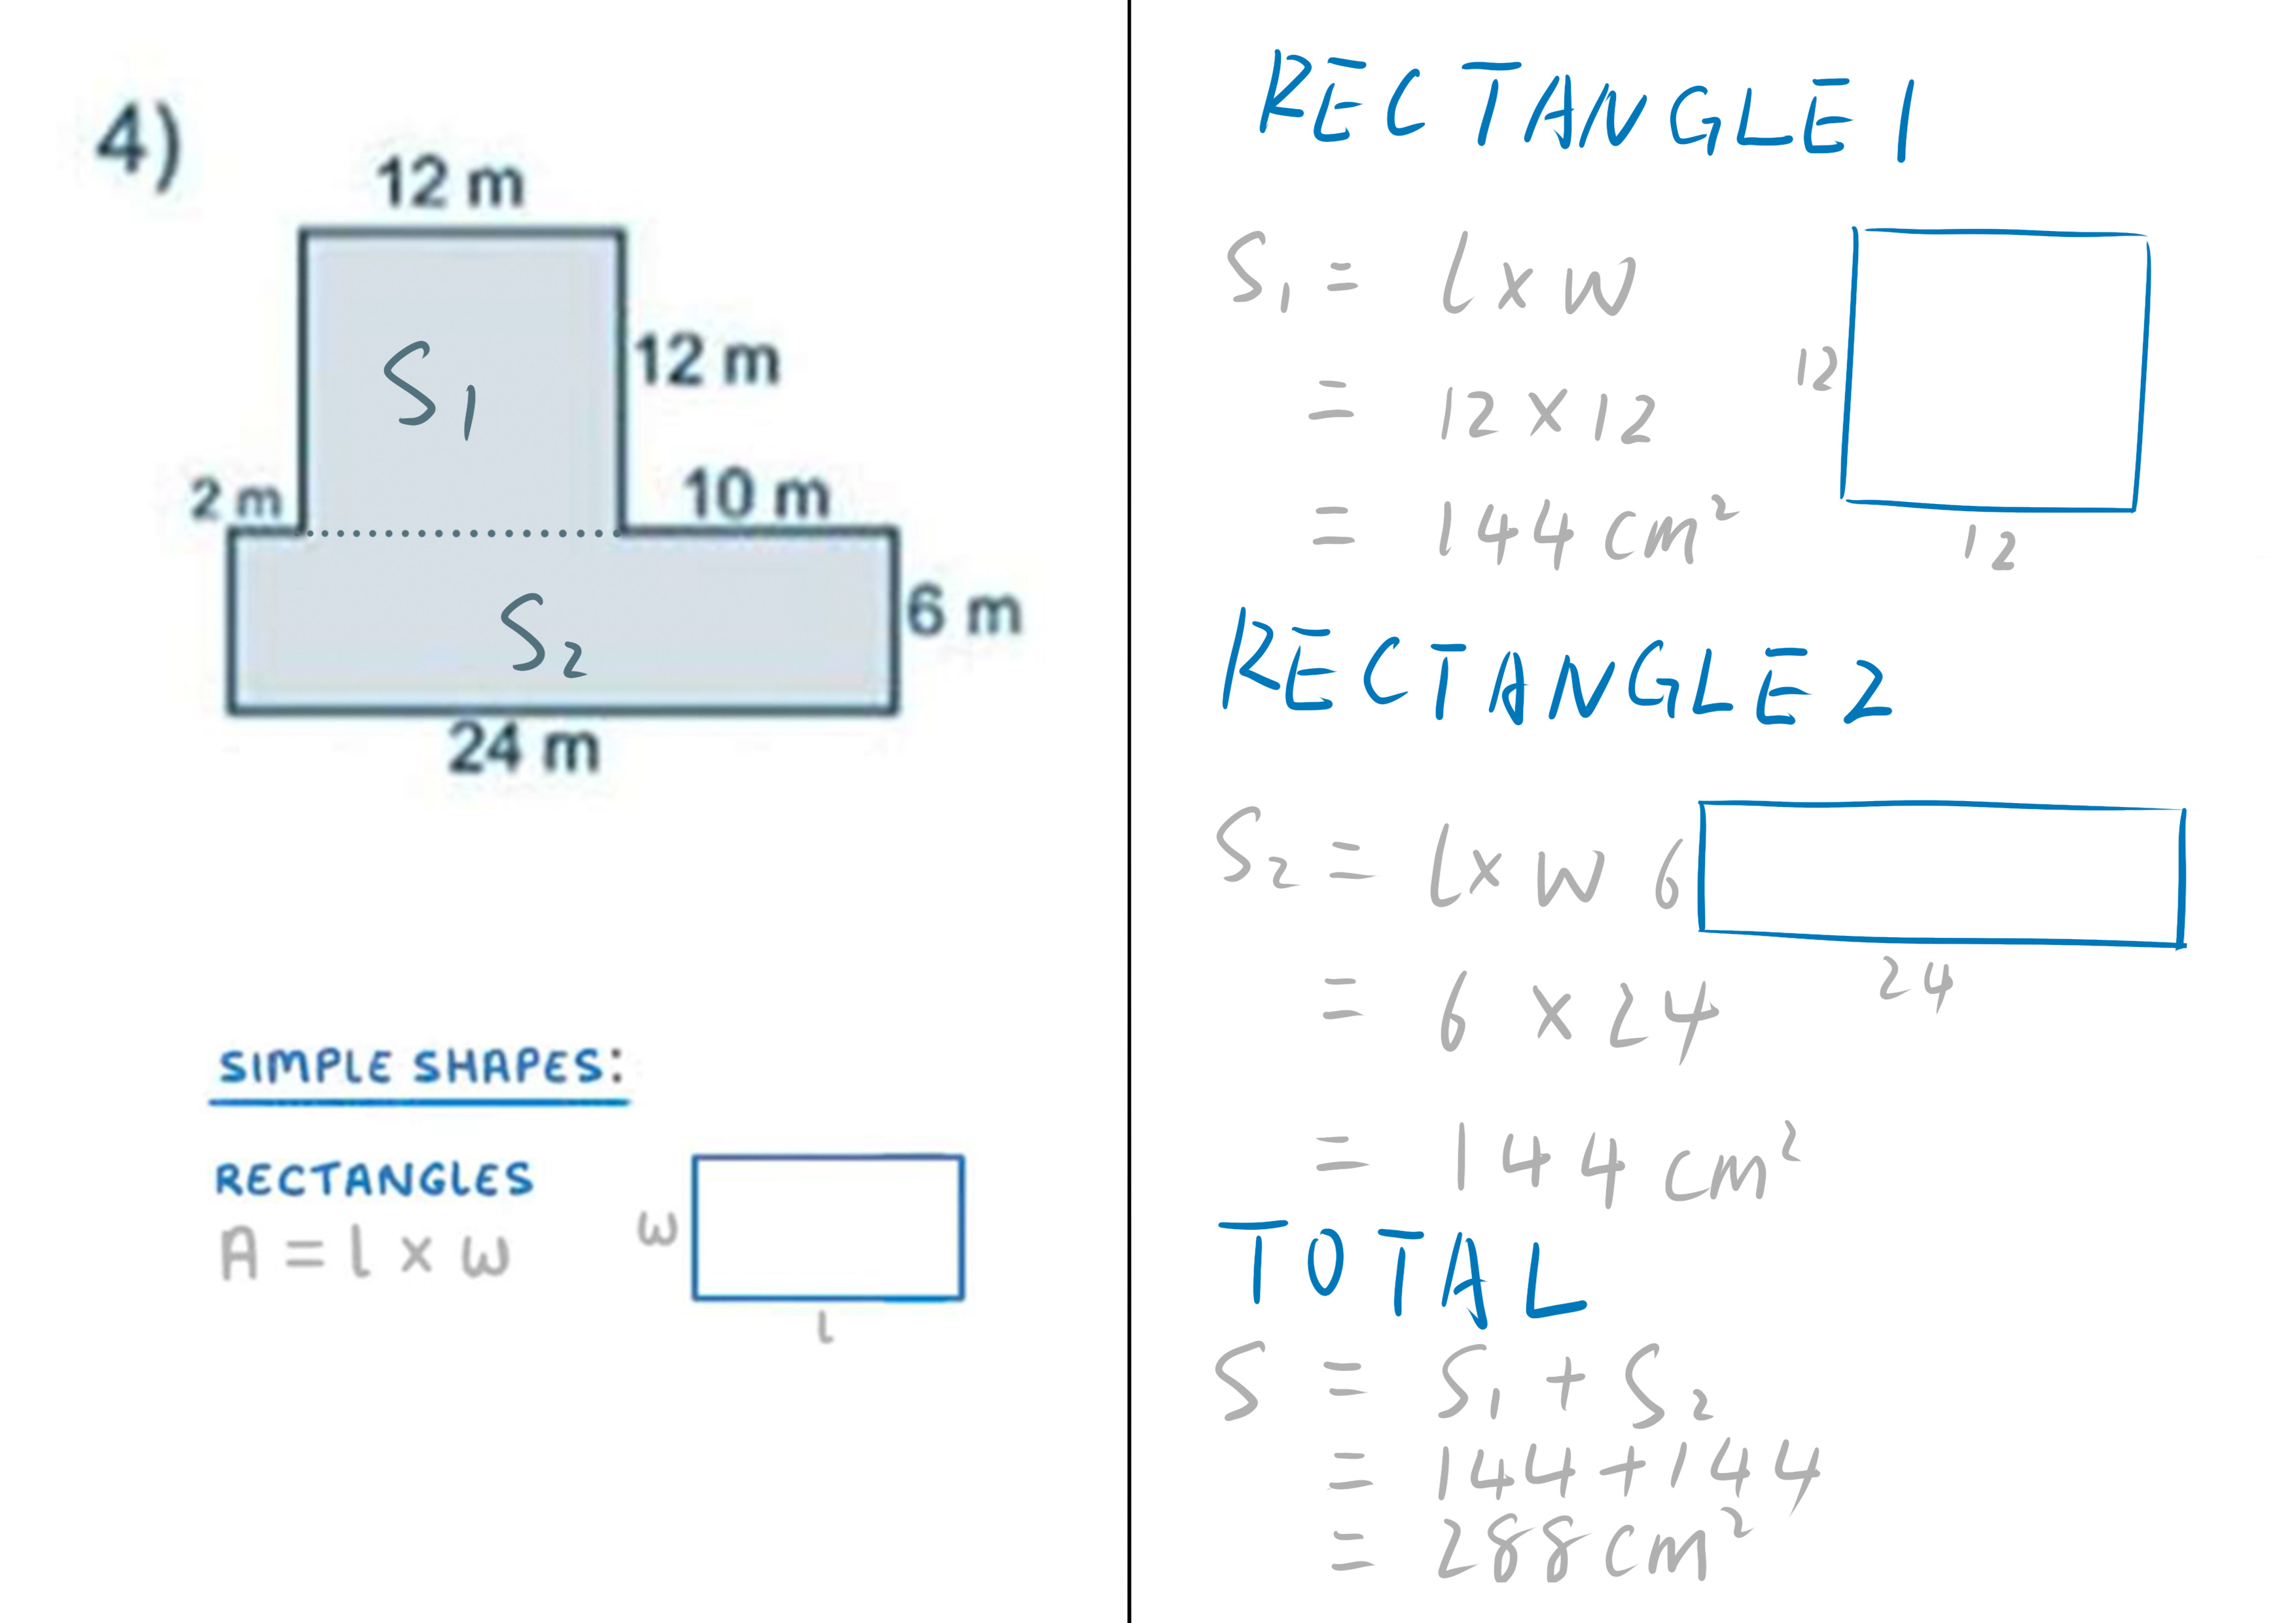 4)
12 m
S₁
12 m
2 m
10 m
S₂
6 m
24 m
SIMPLE SHAPES:
RECTANGLES
A = l × w
w
l
RECTANGLE 1
S₁ = l × w
= 12 × 12
= 144 cm²
12
12
RECTANGLE 2
S₂ = l × w
6
= 6 × 24
24
= 144 cm²
TOTAL
S = S₁ + S₂
= 144 + 144
= 288 cm²